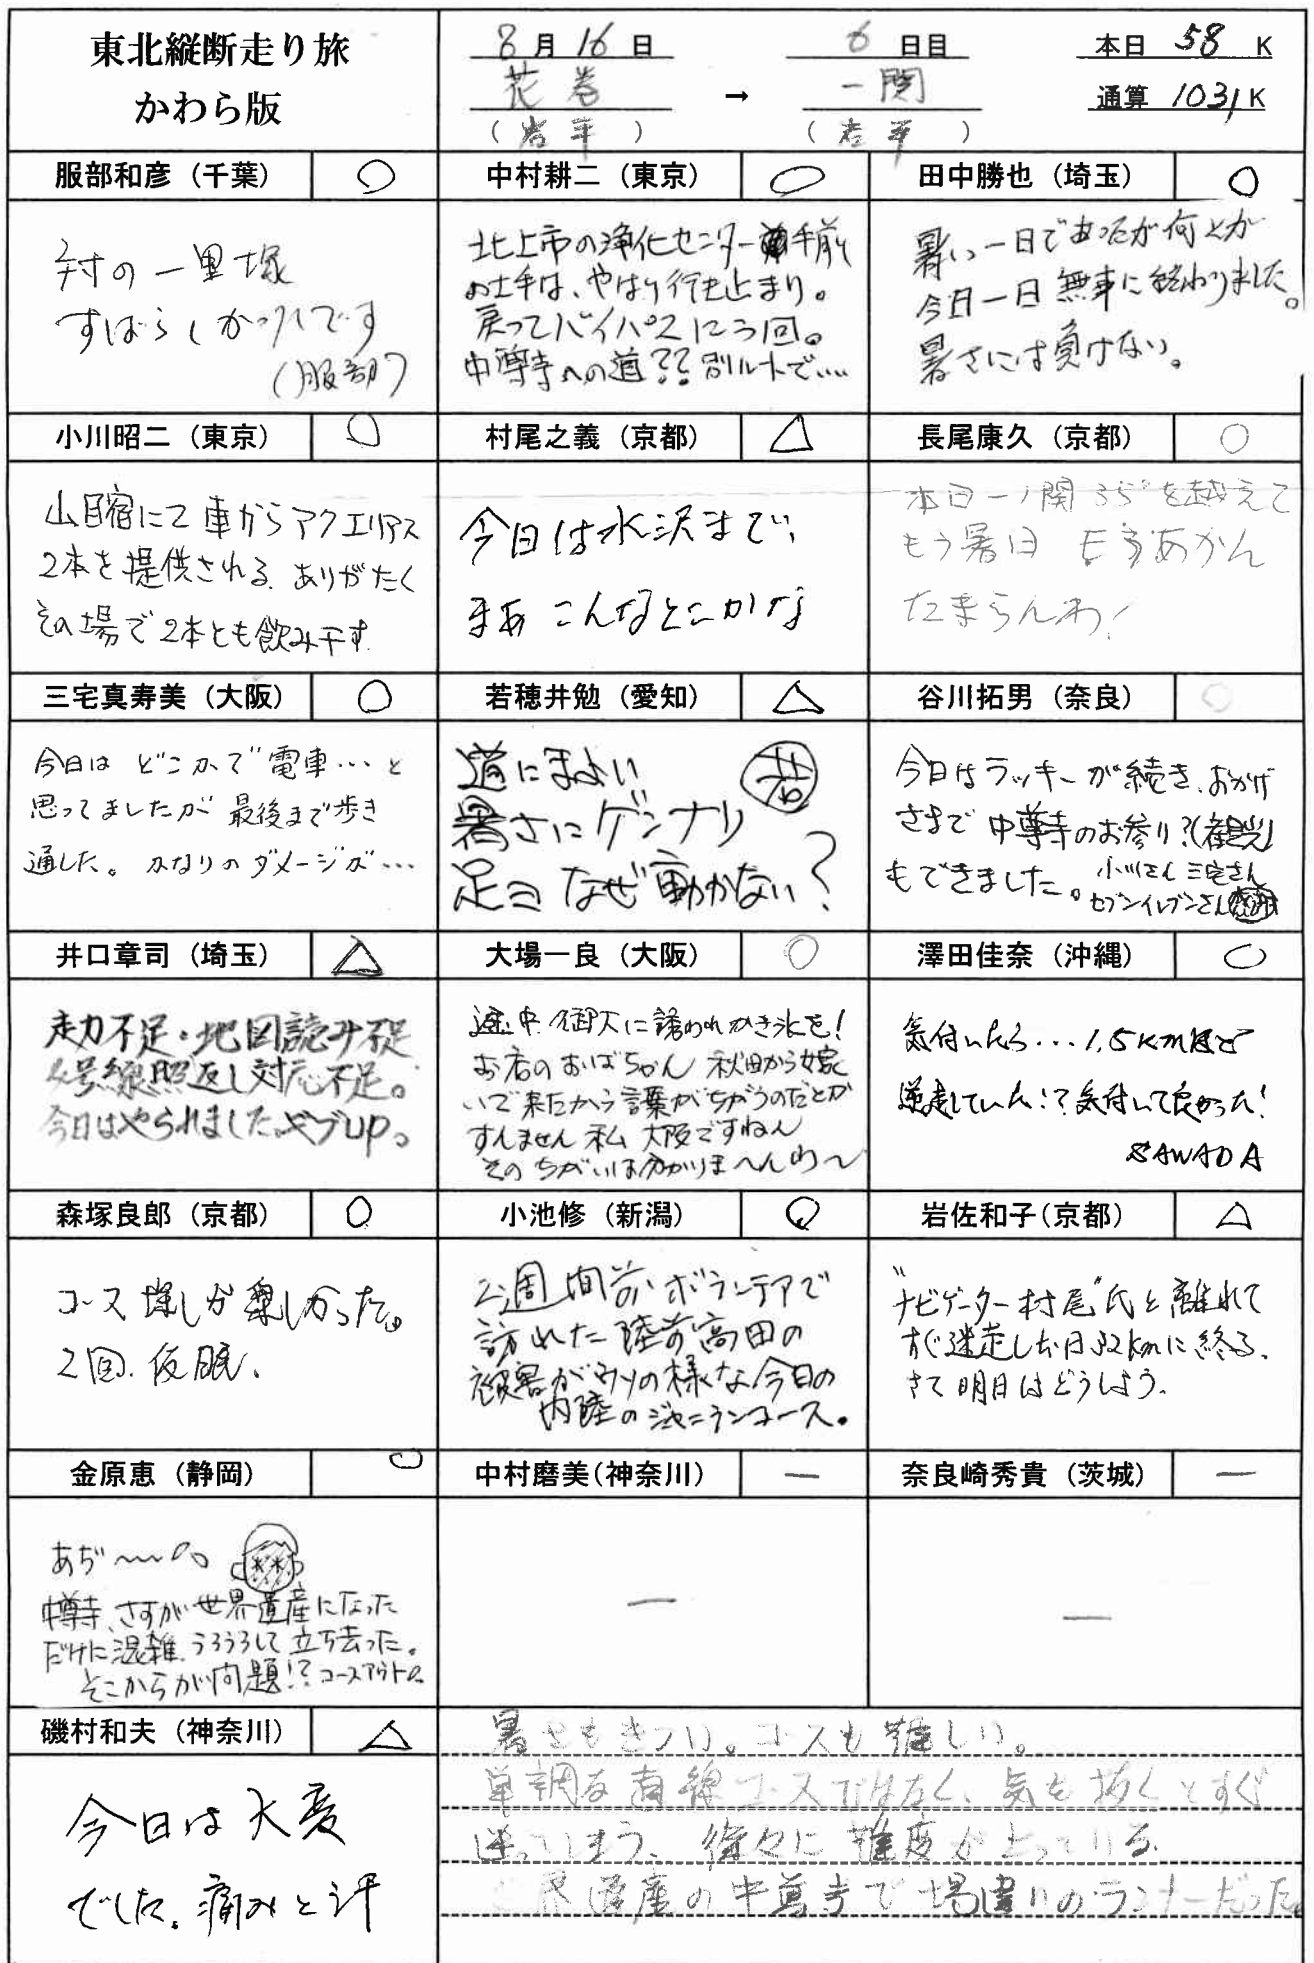 東北縦断走り旅
かわら版
8月16日
6日目
本日 58 K
花巻 → 一関
通算 1031K
(岩手) (岩手)
服部和彦（千葉） ○
対の一里塚
すばらしかったです
(服部)
中村耕二（東京） ○
北上市の浄化センター手前
の土手は、やはり行き止まり。
戻ってバイパスにう回。
中尊寺への道?? 別ルートで‥‥
田中勝也（埼玉） ○
暑い一日であったが何とか
今日一日無事に終わりました。
暑さには負けない。
小川昭二（東京） ○
山目宿にて車からアクエリアス
2本を提供される。ありがたく
その場で2本とも飲み干す。
村尾之義（京都） △
今日は水沢まで、
まあこんなとこかな
長尾康久（京都） ○
本日一ノ関35°を越えて
もう暑い日 もうあかん
たまらんわ!
三宅真寿美（大阪） ○
今日は どこかで電車…と
思ってましたが 最後まで歩き
通した。かなりのダメージが…
若穂井勉（愛知） △
道にまよい 若
暑さにゲンナリ
足ヨ なぜ動かない?
谷川拓男（奈良） ○
今日はラッキーが続き、おかげ
さまで 中尊寺のお参り?(観光)
もできました。小川さん 三宅さん
セブンイレブンさん 感謝
井口章司（埼玉） △
走力不足・地図読み不足
4号線照返し対応不足。
今日はやられました。ギブUP。
大場一良（大阪） ○
途中、御大に誘われかき氷を!
お店のおばちゃん 秋田から嫁
いで来たから言葉がちがうのだとか
すんません 私 大阪ですねん
そのちがいは分かりま〜へんわ〜
澤田佳奈（沖縄） ○
気付いたら…1.5kmほど
逆走していた!? 気付いて良かった!
SAWADA
森塚良郎（京都） ○
コース探しが楽しかった。
2回、仮眠、
小池修（新潟） ○
2週間前ボランテアで
訪れた陸前高田の
被害がウソの様な今日の
内陸のジャーニーランコース。
岩佐和子(京都） △
"ナビゲーター村尾"氏と離れて
すぐ迷走した日32kmに終る、
さて明日はどうしよう。
金原恵（静岡） ○
あぢ〜〜
中尊寺、さすが世界遺産になった
だけに混雑、うろうろして立ち去った。
そこからが問題!? コースアウト
中村磨美(神奈川） ー
ー
奈良崎秀貴（茨城） ー
ー
磯村和夫（神奈川） △
今日は大変
でした。痛みと汗
暑さもきつい。コースも難しい。
単調な直線コースではなく、気を抜くとすぐ
迷ってしまう、徐々に難度が上っている。
世界遺産の中尊寺で場違いのランナーだった。